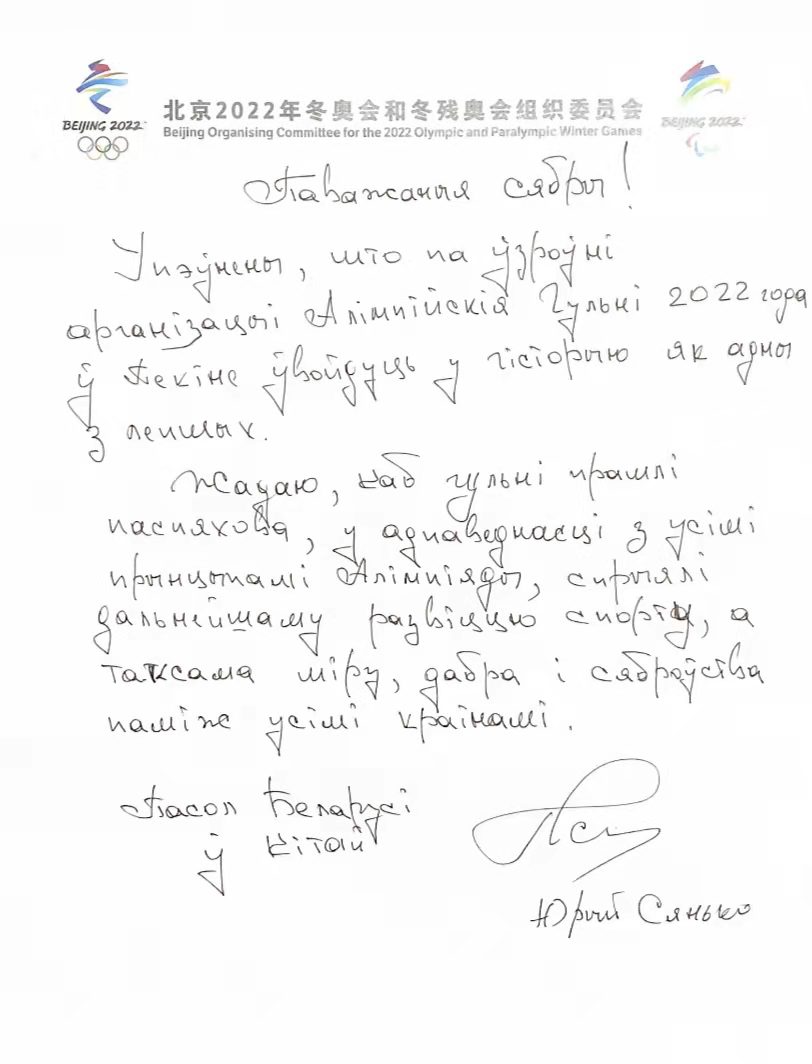 BEIJING 2022
北京2022年冬奥会和冬残奥会组织委员会
Beijing Organising Committee for the 2022 Olympic and Paralympic Winter Games
BEIJING 2022
Паважаныя сябры!
Упэўнены, што па ўзроўні
арганізацыі Алімпійскія Гульні 2022 года
ў Пекіне ўвойдуць у гісторыю як адны
з лепшых.
Жадаю, каб гульні прашлі
паспяхова, у адпаведнасці з усімі
прынцыпамі Алімпіяды, спрыялі
дальнейшаму развіццю спорту, а
таксама міру, дабра і сяброўства
паміж усімі краінамі.
Пасол Беларусі
ў Кітаі
Юрый Сянько